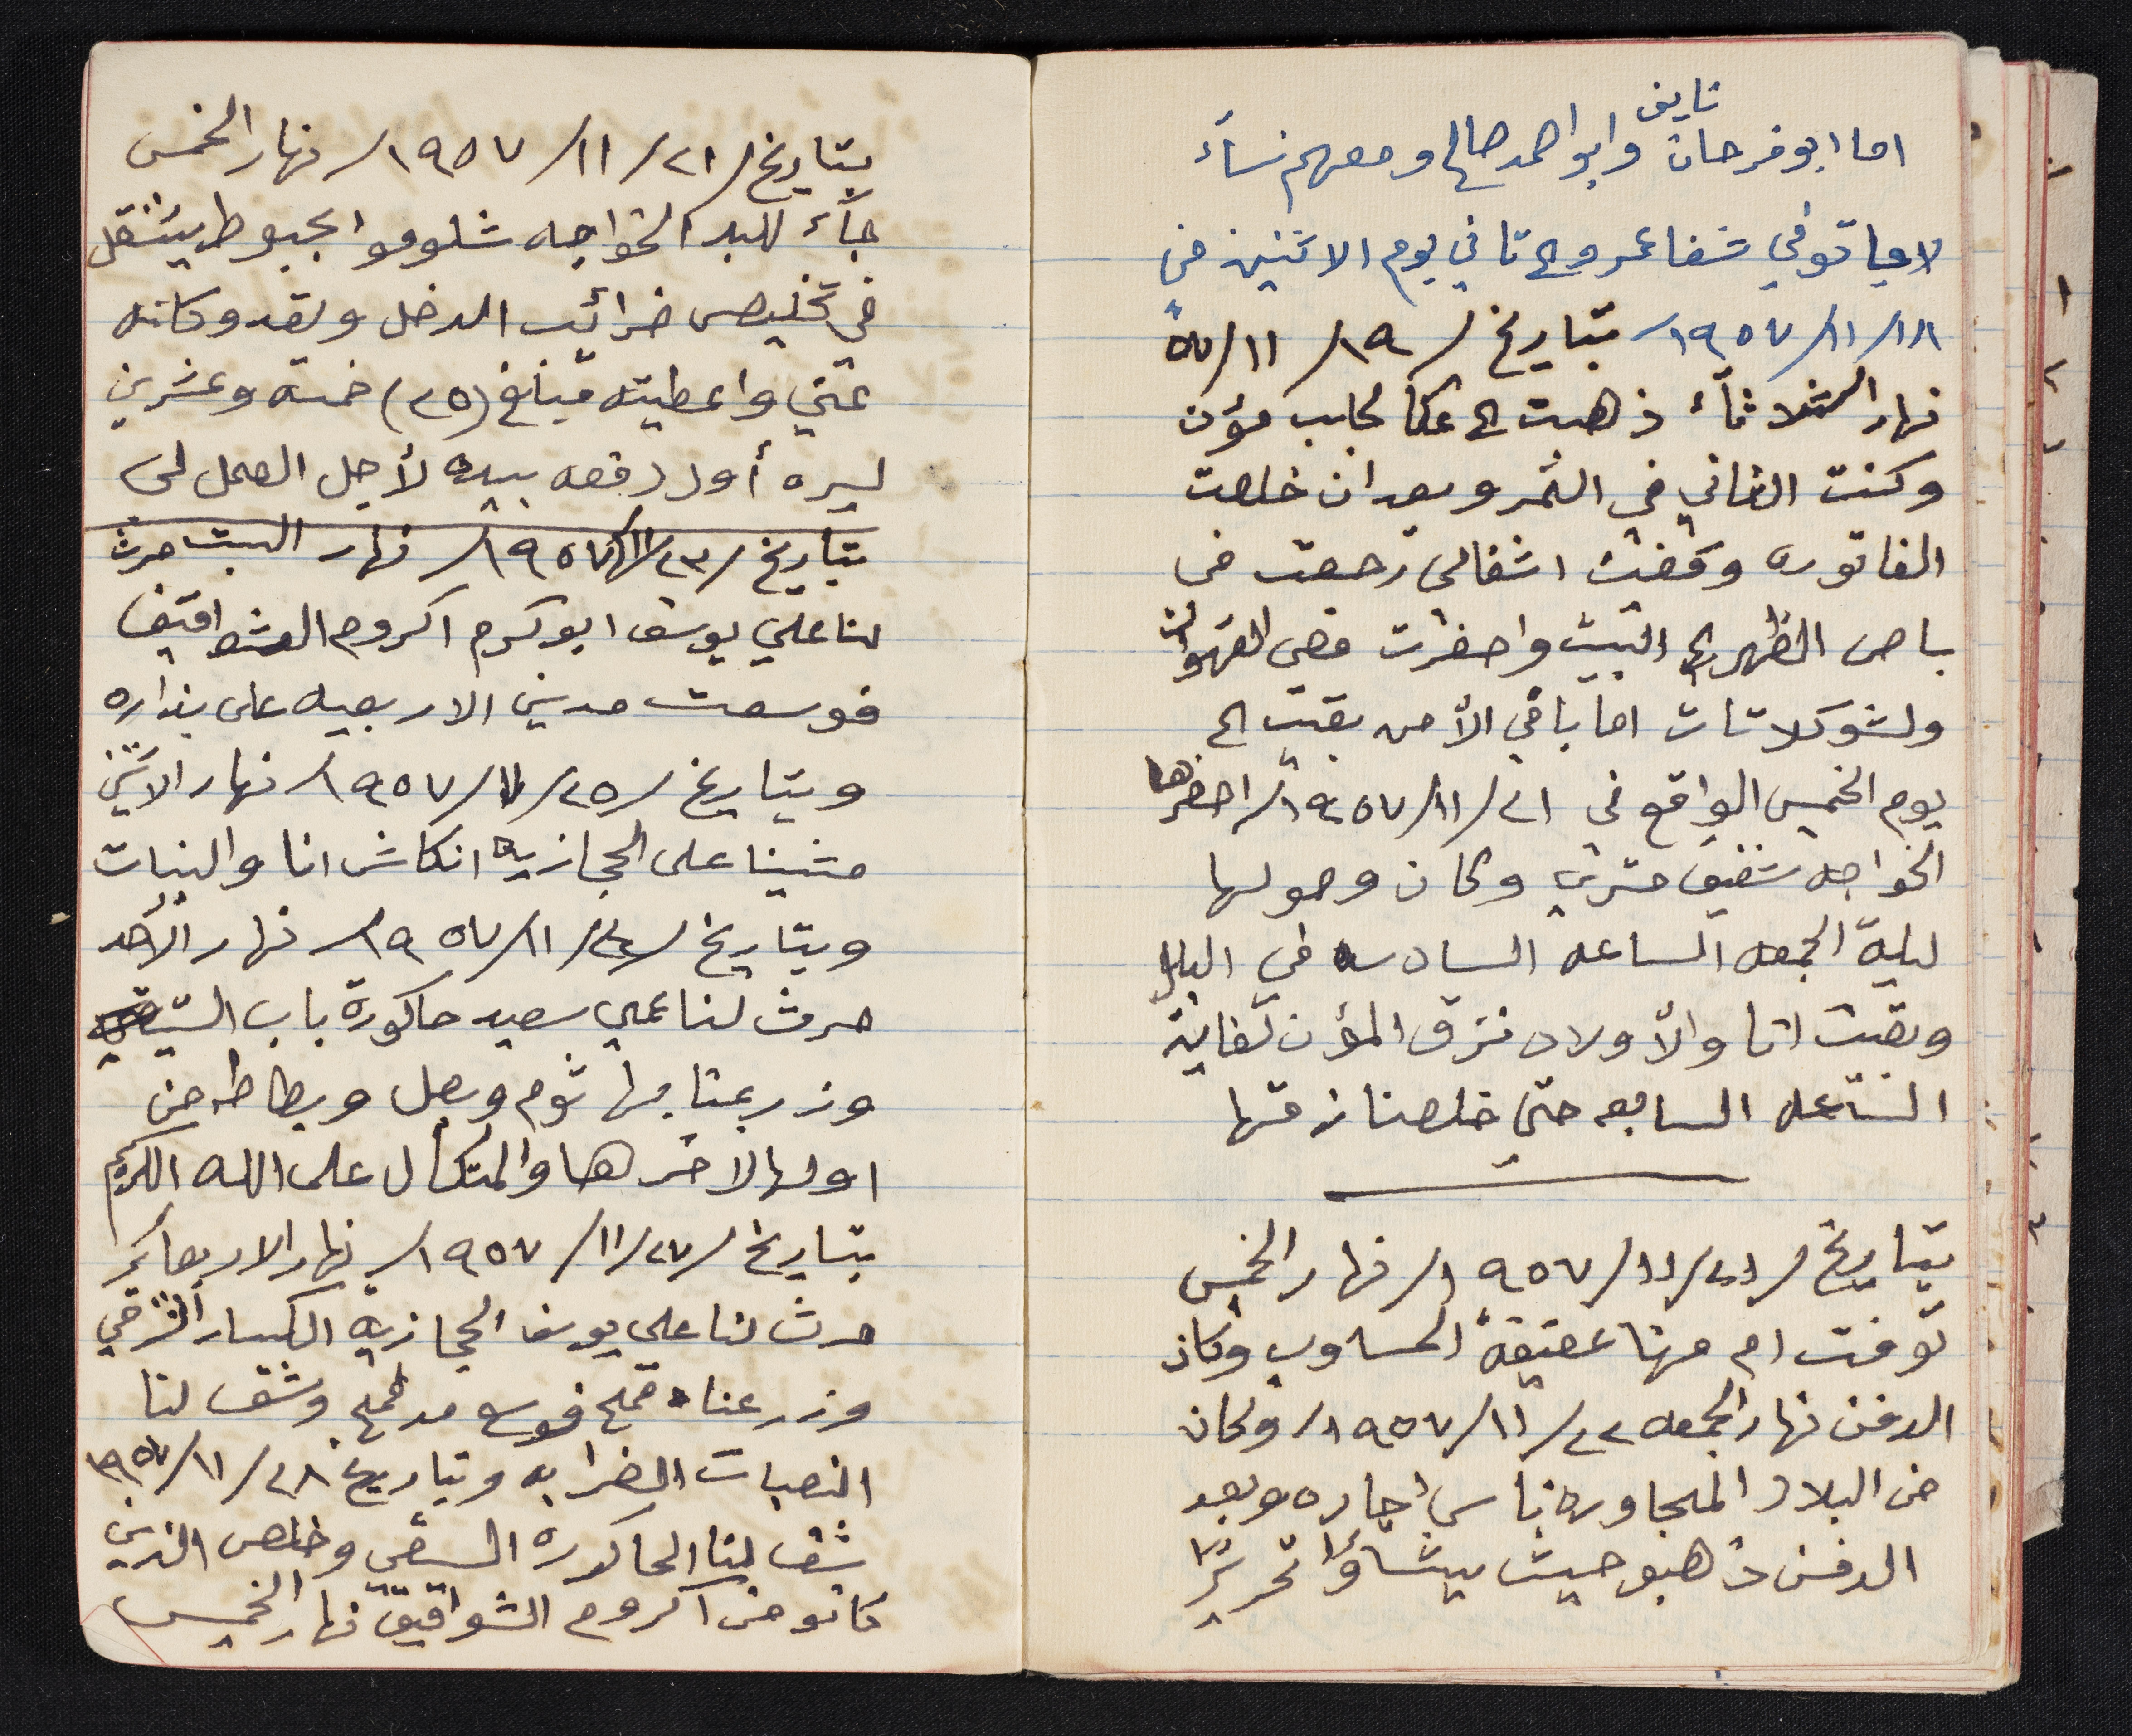 نايف
اما ابو فرحان وابو احمد صالح ومعهم نسآء
لاجا توفي شفاعمرو الى تاني يوم الاثنين في
١٨/١١/١٩٥٧/ بتاريخ /١٩/ ١١/٥٧
نهار الثلاثآء ذهبت الى عكا لجلب مؤن
وكنت الثاني في النمر وبعد ان خلصت
الفاتوره وقضيت اشغالي رجعت في
باص الظهر الى البيت واحضرت معي القهوات
ولشوكلاتات اما باقي الأمن بقيت الى
يوم الخميس الواقع في ٢١/١١/١٩٥٧/ احضرها
الخواجه شفيق متري وكان وصولها
ليلة الجمعه الساعه السادسه في اليل
وبقيت انا والأولاد ننزق المؤن لغاية
الساعه السابعه حتى خلصنا نزقتها
بتاريخ /٢١/١١/١٩٥٧/ نهار الخميس
توفت ام مهنا عقيقة الحساوي وكان
الدفن نهار الجمعه ٢٢/١١/١٩٥٧/ وكان
من البلاد المجاوره ناس اجاره وبعد
الدفن ذهبو حيث يشاؤا تحريرًا
بتاريخ /٢١/١١/١٩٥٧/ نهار الخمس
جآء للبلد الخواجه شلومو ابجبوط ييشتغل
في تخليص ضرائب الدخل ولقد وكلته
عني واعطيته مبلغ (٢٥) خمسة وعشرين
ليره أول دفعه بيده لأجل العمل لي
بتاريخ /٢٣/١١/١٩٥٧/ نهار السبت حرث
لنا علي يوسف ابو كرم اكروم الشواقيف
فوسعت مدين الاربعيه على بذاره
وبتاريخ /٢٥/١١/١٩٥٧/ نهار الاثنين
مشينا على الحجازيه انكاش انا والبنات
وبتاريخ /٢٤/١١/١٩٥٧/ نهار الأحد
حرث لنا عمي سعيد حاكورة باب الستيقي
وزرعنا بها ثوم وبصل وبطاطه من
اولها لاخرها والمتكال على الله الكريم
بتاريخ /٢٧/١١/١٩٥٧/ نهار الاربعائر
حرث لنا علي يوسف الحجازية الكسار الشرقي
وزرعناه قمح فوسع مد قمح وشقف لنا
النصبات الضرابه وبتاريخ ٢٨/١١/١٩٥٧
شقف لنا الحاكوره السيقي وخلص الذين
كانو من اكروم الشواقيق نهار الخميس